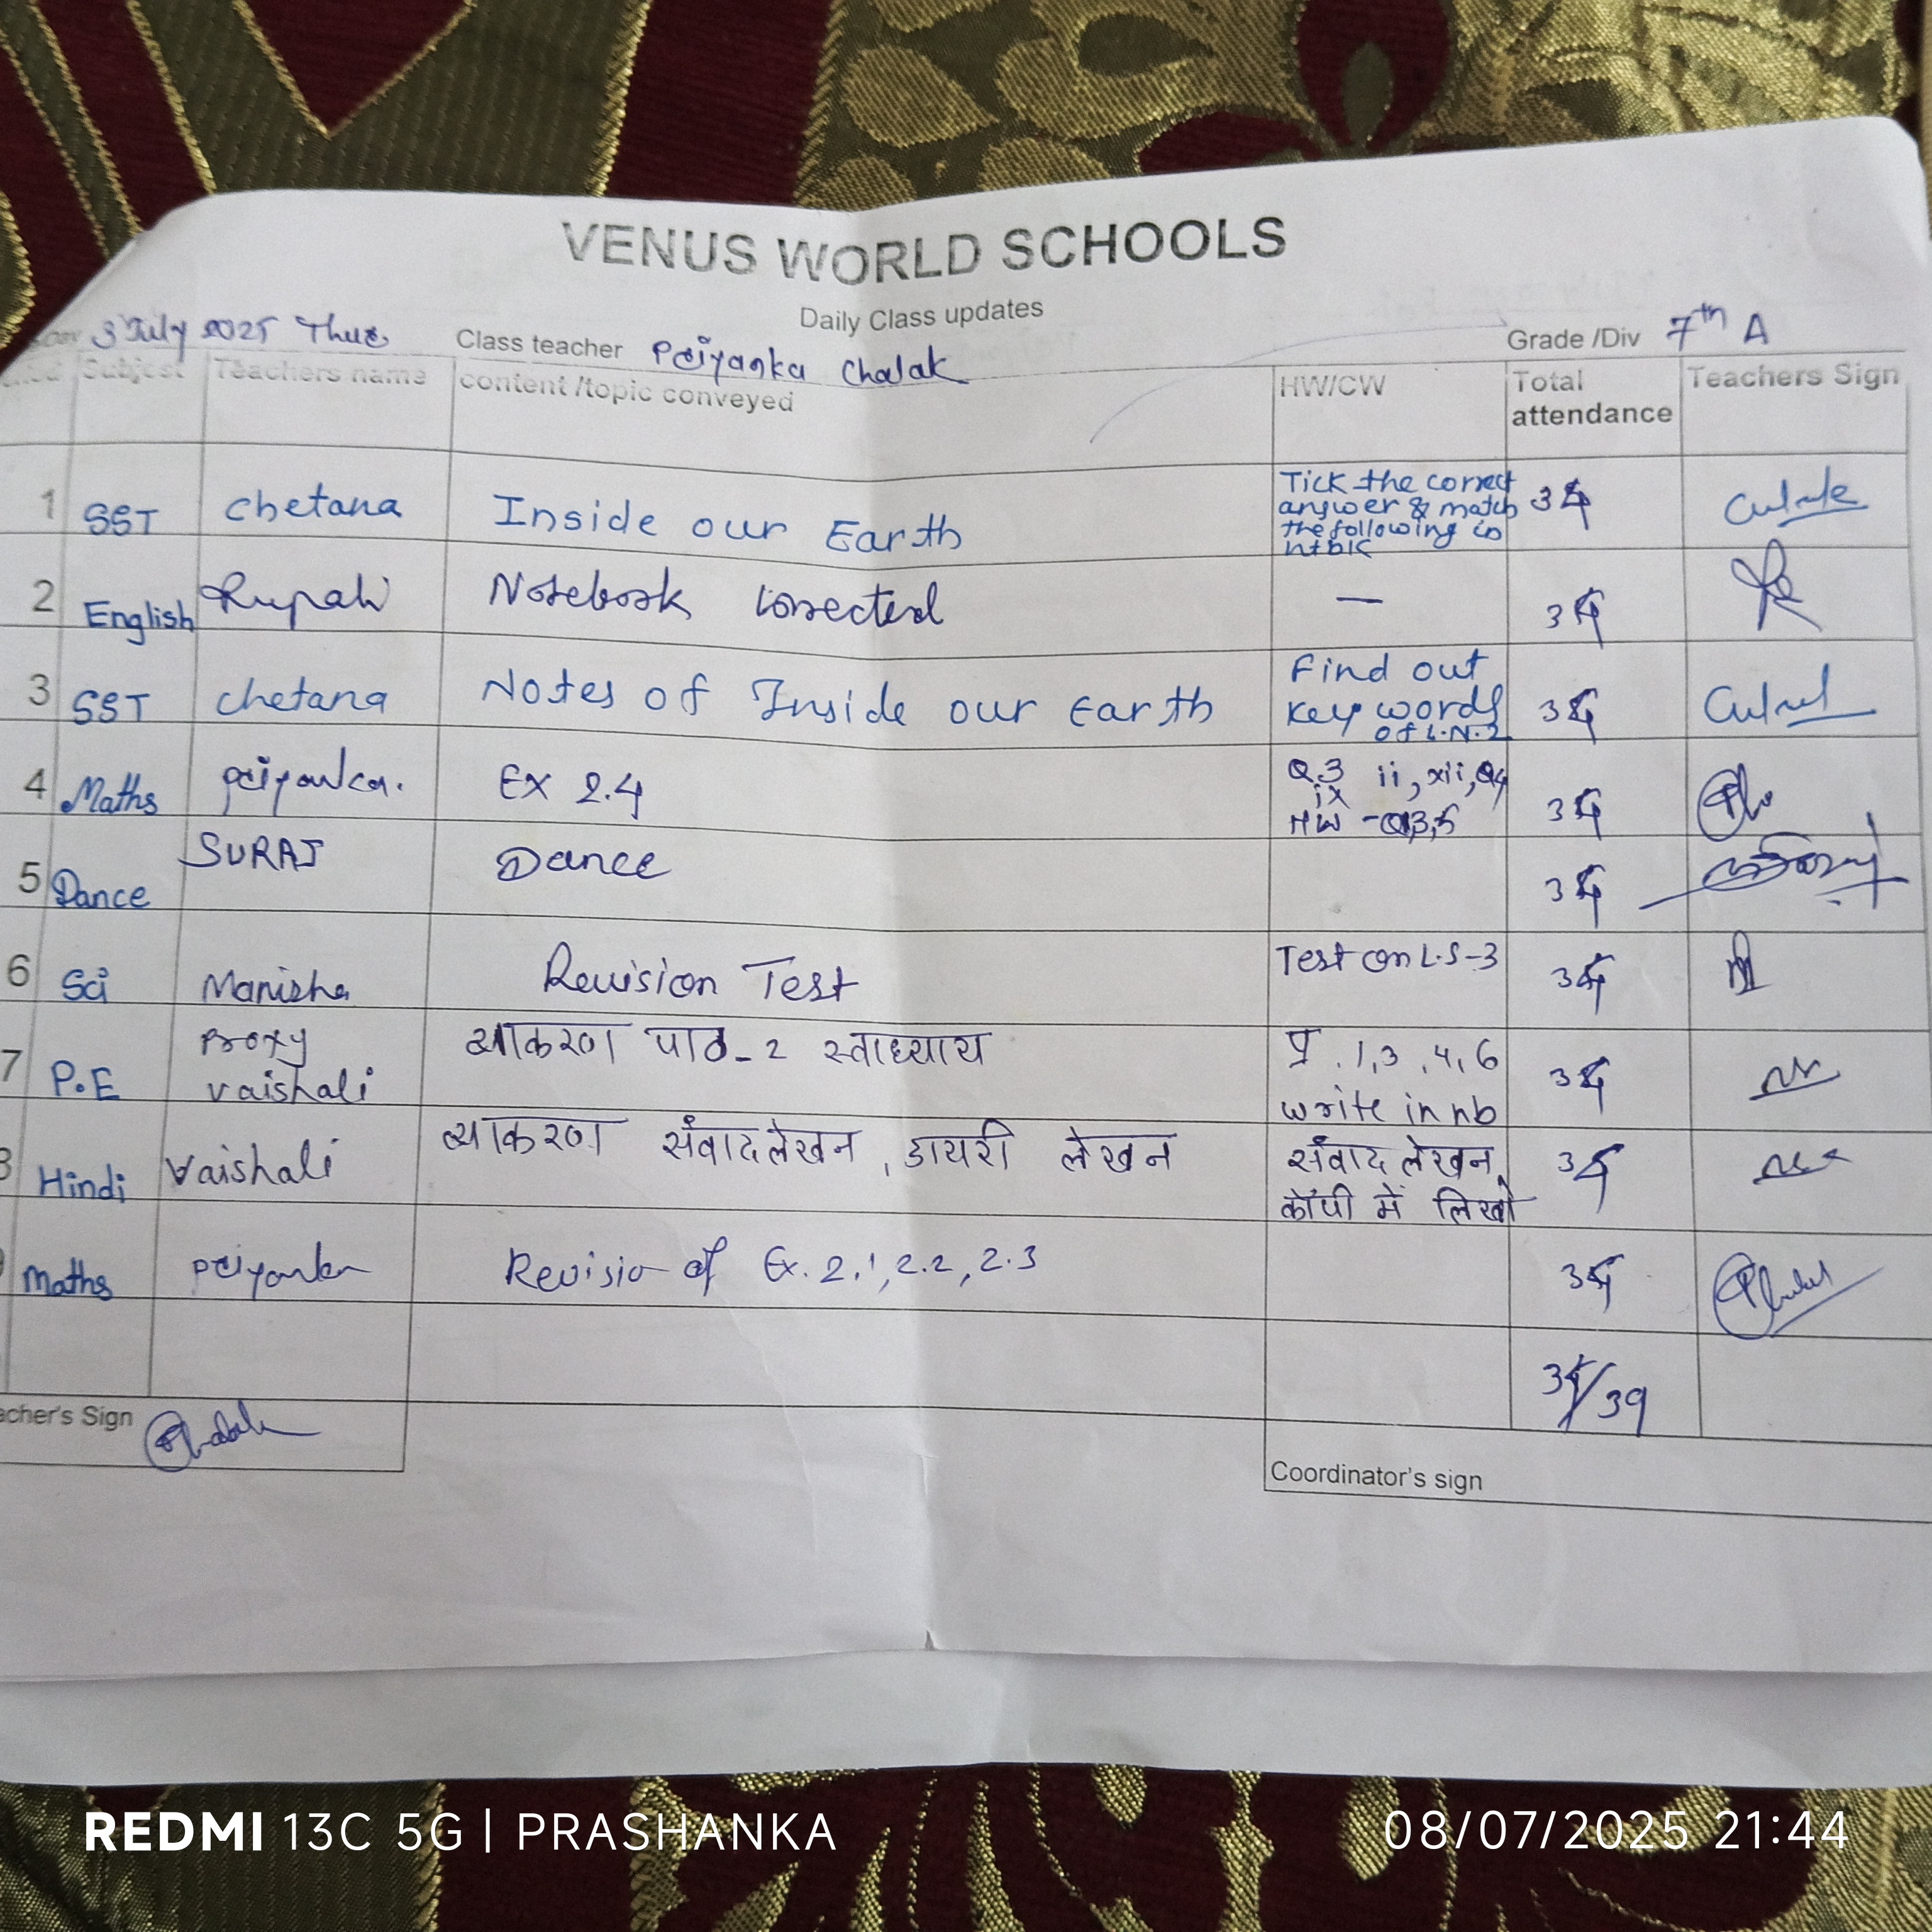 VENUS WORLD SCHOOLS
Daily Class updates
3 July 2025 Thur Class teacher Priyanka Chalak Grade /Div 7th A
Subject Teachers name content /topic conveyed HW/CW Total attendance Teachers Sign
1 SST Chetana Inside our Earth Tick the correct answer & match the following in ntbk
2 English Rupali Notebook corrected —
3 SST Chetana Notes of Inside our Earth Find out key words of L.N.2
4 Maths Priyanka. Ex 2.4 Q.3 ii, xii, Q4 ix HW -
5 Dance SURAJ Dance
6 Sci Manisha Revision Test Test on L.S-3
7 P.E Proxy Vaishali व्याकरण पाठ-2 स्वाध्याय प्र. 1,3,4,6 write in nb
Hindi Vaishali व्याकरण संवादलेखन, डायरी लेखन संवाद लेखन, कॉपी में लिखो
Maths Priyanka Revision of Ex. 2.1, 2.2, 2.3
/39
Sign
Coordinator's sign
REDMI 13C 5G | PRASHANKA 08/07/2025 21:44